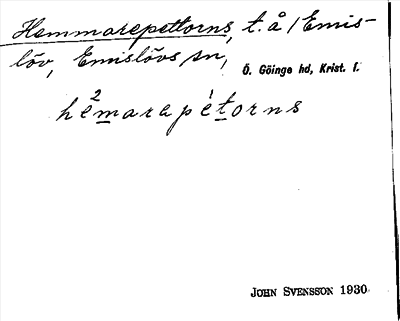 Hemmarepettorns, t. å /Emis-
löv, Emislövs sn,
Ö. Göinge hd, Krist. l.
hè²marapé́torns
JOHN SVENSSON 1930